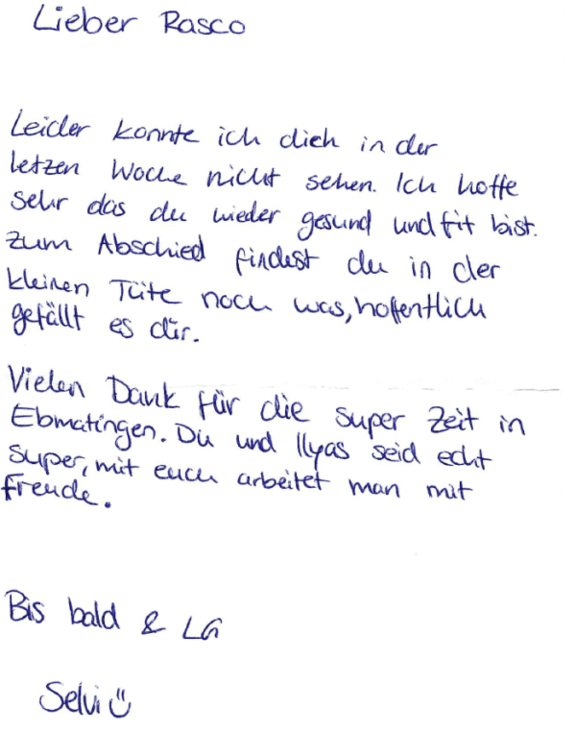 Lieber Rasco
Leider konnte ich dich in der
letzen Woche nicht sehen. Ich hoffe
sehr das du wieder gesund und fit bist.
Zum Abschied findest du in der
kleinen Tüte noch was, hoffentlich
gefällt es dir.
Vielen Dank für die super Zeit in
Ebmatingen. Du und Ilyas seid echt
super, mit euch arbeitet man mit
freude.
Bis bald & LG
Selvi ☺